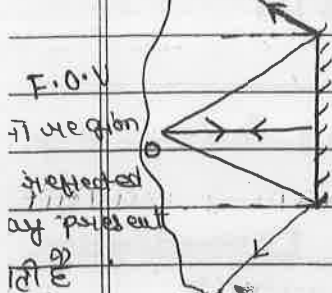 F.O.V
region
reflected
ay present
है